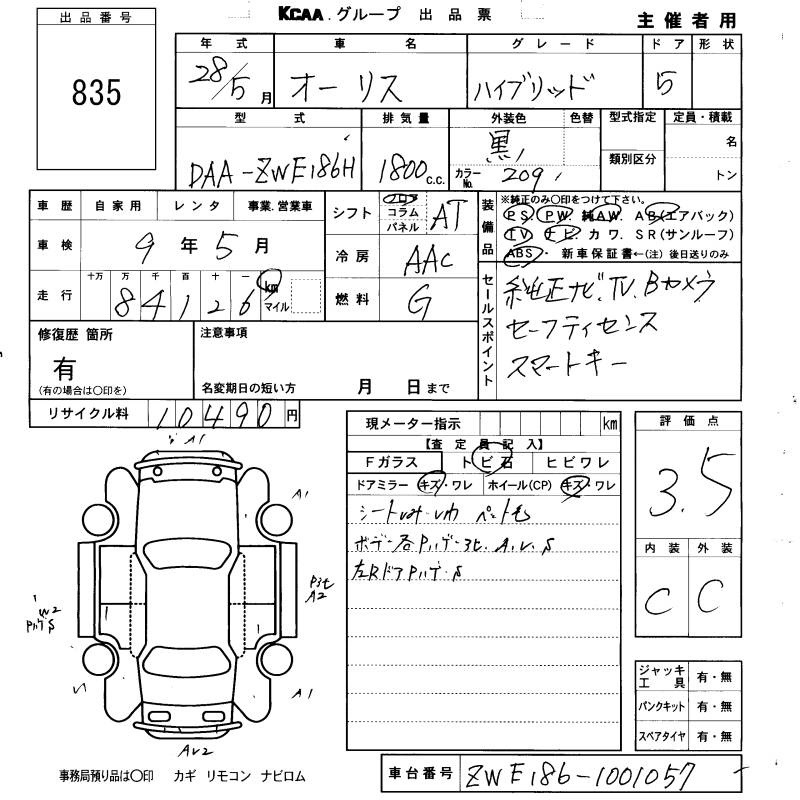 出品番号
835
KCAA.グループ 出品票
主催者用
年式 車名 グレード ドア 形状
28/5月 オーリス ハイブリッド 5
型式 排気量 外装色 色替 型式指定 定員・積載
DAA-ZWE186H 1800c.c. 黒 カラーNo. 209 類別区分 名 トン
車歴 自家用 レンタ 事業.営業車
車検 9年5月
走行 十万 万 千 百 十 一
84126 km マイル
シフト フロア コラム パネル AT
冷房 AAC
燃料 G
装備品 ※純正のみ○印をつけて下さい。
PS. PW. 純AW. AB(エアバック)
TV. ナビ. カワ. SR(サンルーフ)
ABS・新車保証書←(注)後日送りのみ
セールスポイント
純正ナビ.TV.Bカメラ
セーフティセンス
スマートキー
修復歴 箇所
有
(有の場合は○印を)
注意事項
名変期日の短い方 月 日まで
リサイクル料 10490円
現メーター指示 km
【査定員記入】
Fガラス トビ石 ヒビワレ
ドアミラー キズ・ワレ ホイール(CP) キズ・ワレ
A1
A1
A2
W2
A1
AV2
評価点
3.5
内装 外装
C C
ジャッキ工具 有・無
パンクキット 有・無
スペアタイヤ 有・無
事務局預り品は○印 カギ リモコン ナビロム
車台番号 ZWE186-1001057